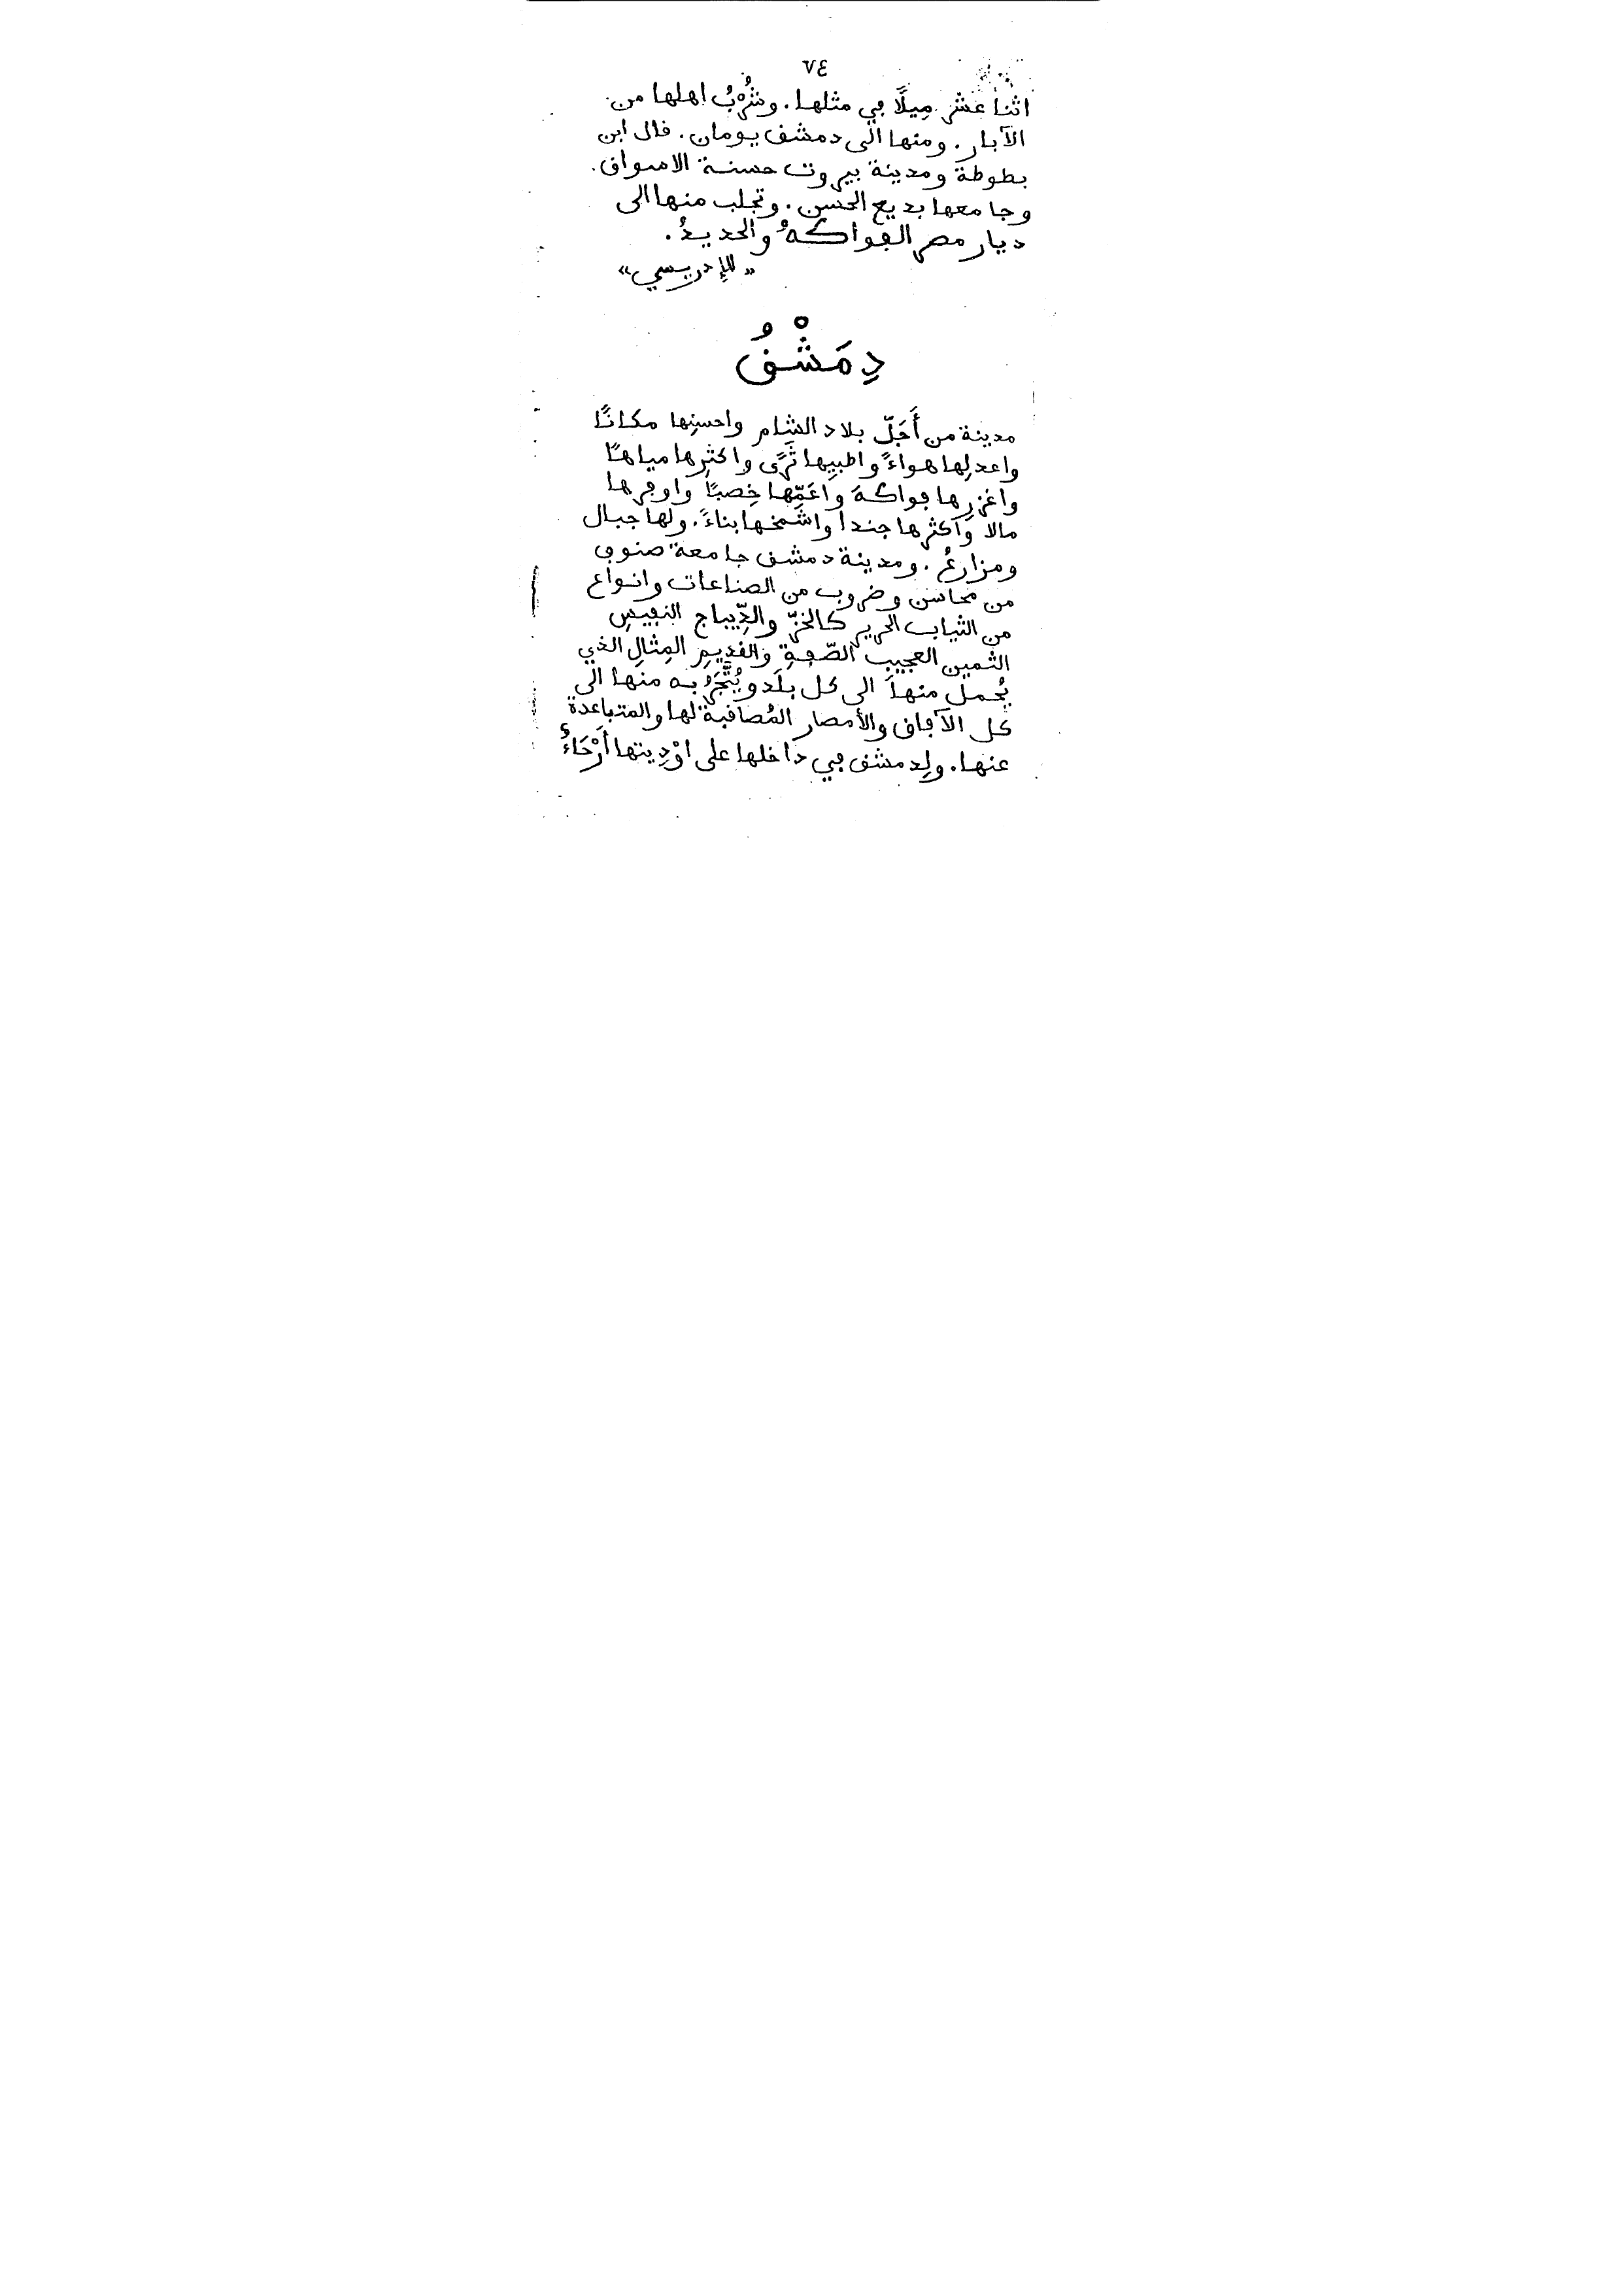 ٧٤
اثنا عشر مِيلًا في مثلها. وشُرْبُ اهلها من
الآبار. ومنها الى دمشق يومان. قال ابن
بطوطة ومدينة بيروت حسنة الاسواق.
وجامعها بديع الحسن. وتجلب منها الى
ديار مصر الفواكهُ والحديدُ.
«للإدريسي»
دِمَشْقُ
مدينة من أَجَلّ بلاد الشام واحسنِها مكانًا
واعدلِها هواءً واطيبِها ثَرًى واكثرِها مياهًا
واغزرِها فواكهَ واعَمِّها خِصبًا واوفرها
مالا واكثرها جندا واشمخها بناءً. ولها جبال
ومزارعُ. ومدينة دمشق جامعة صنوف
من محاسن وضروب من الصناعات وانواع
من الثياب الحرير كالخزّ والدِّيباج النفيسِ
الثمين العجيب الصّفةِ والقديمِ المِثالِ الذي
يُحمل منها الى كل بلَد ويُتَّجَرُ به منها الى
كل الآفاق والأمصار المُصاقبة لها والمتباعدة
عنها. ولِدمشق في داخلها على اوْدِيتها أَرْحَاءٌ